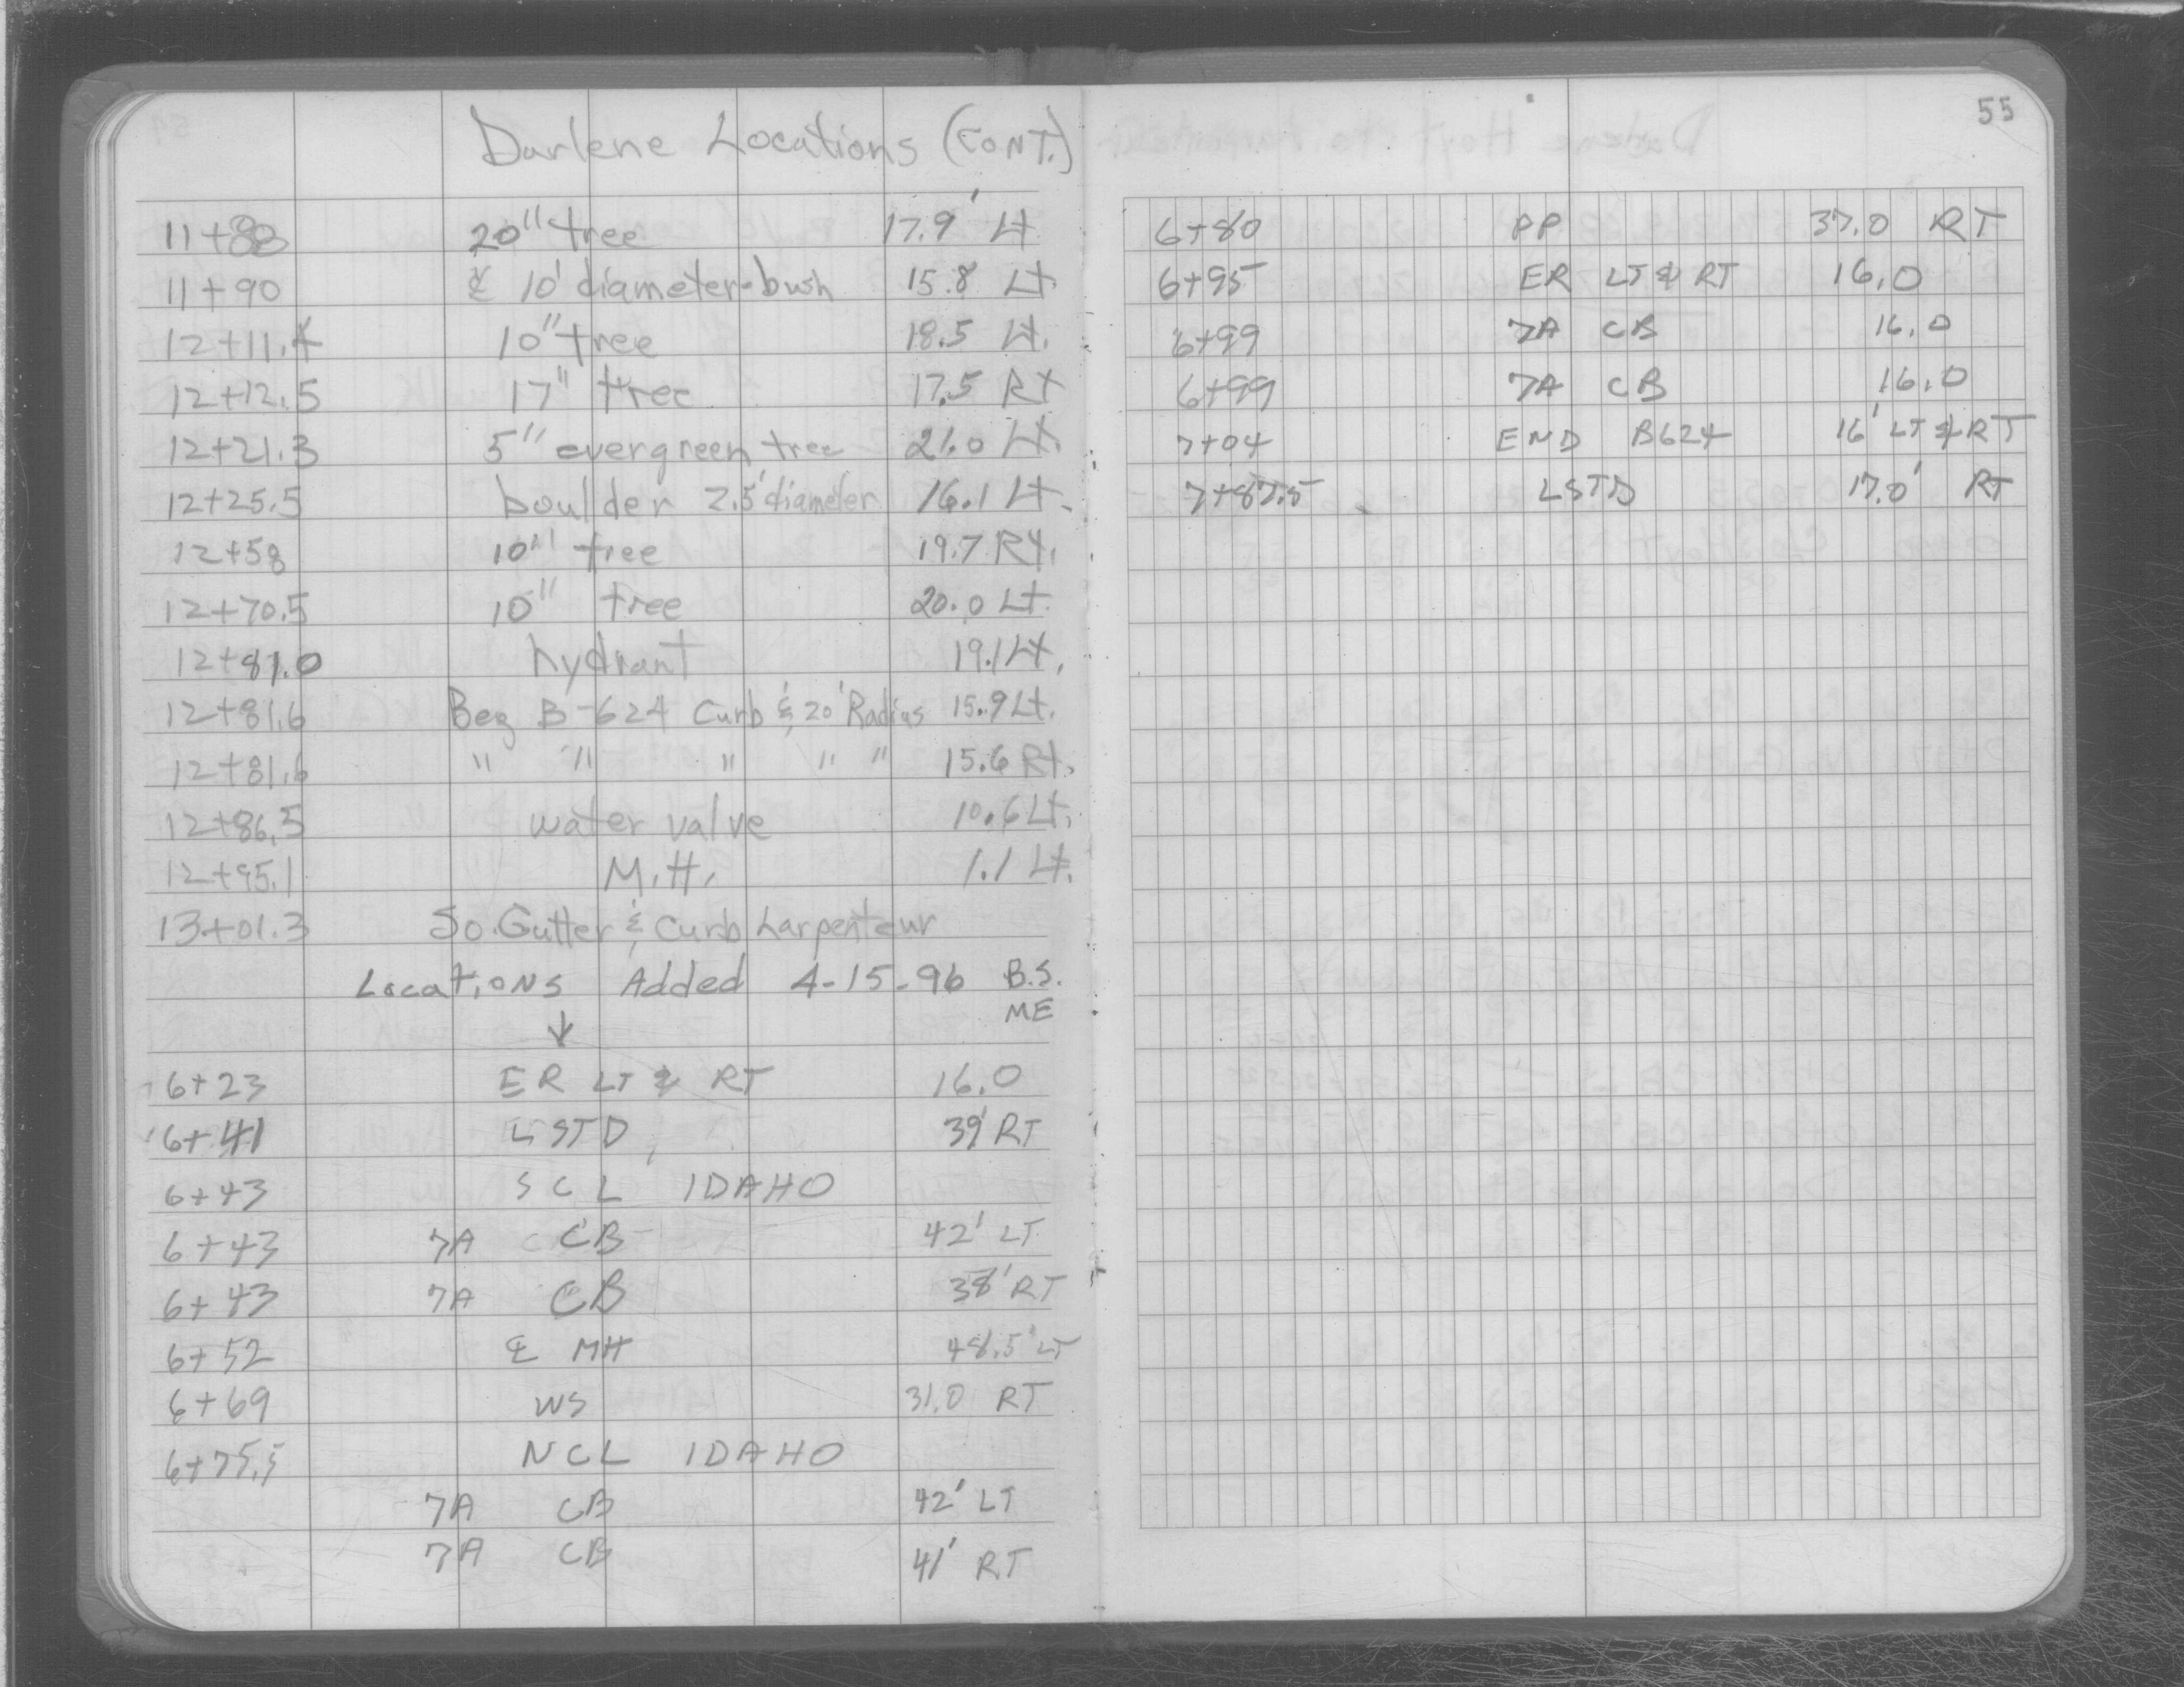 Darlene Locations (CONT.)
11+88 20" tree 17.9' Lt
11+90 ℄ 10' diameter-bush 15.8' Lt.
12+11.4 10" tree 18.5 Lt.
12+12.5 17" tree 17.5 Rt
12+21.3 5" evergreen tree 21.0 Lt.
12+25.5 boulder 2.5' diameter 16.1 Lt.
12+58 10" tree 19.7 Rt.
12+70.5 10" tree 20.0 Lt.
12+81.0 hydrant 19.1 Lt.
12+81.6 Beg B-624 Curb & 20' Radius 15.9 Lt.
12+81.6 " " " " " 15.6 Rt.
12+86.5 water valve 10.6 Lt.
12+95.1 M.H. 1.1 Lt.
13+01.3 So. Gutter & Curb Larpenteur
Locations Added 4-15-96 B.S.
ME
↓
6+23 ER LT & RT 16.0
6+41 LSTD 39' RT
6+43 SCL IDAHO
6+43 7A CB 42' LT
6+43 7A CB 38' RT
6+52 ℄ MH 48.5' LT
6+69 WS 31.0 RT
6+75.5 NCL IDAHO
7A CB 42' LT
7A CB 41' RT
55
6+80 PP 37.0 RT
6+95 ER LT & RT 16.0
6+99 7A CB 16.0
6+99 7A CB 16.0
7+04 END B624 16' LT & RT
7+87.5 LSTD 17.0' RT